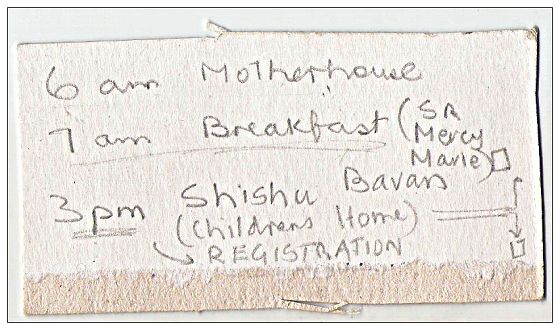 6 am Motherhouse
7 am Breakfast (SR
Mercy
Marie)
3pm Shishu Bavan
(Childrens Home)
REGISTRATION